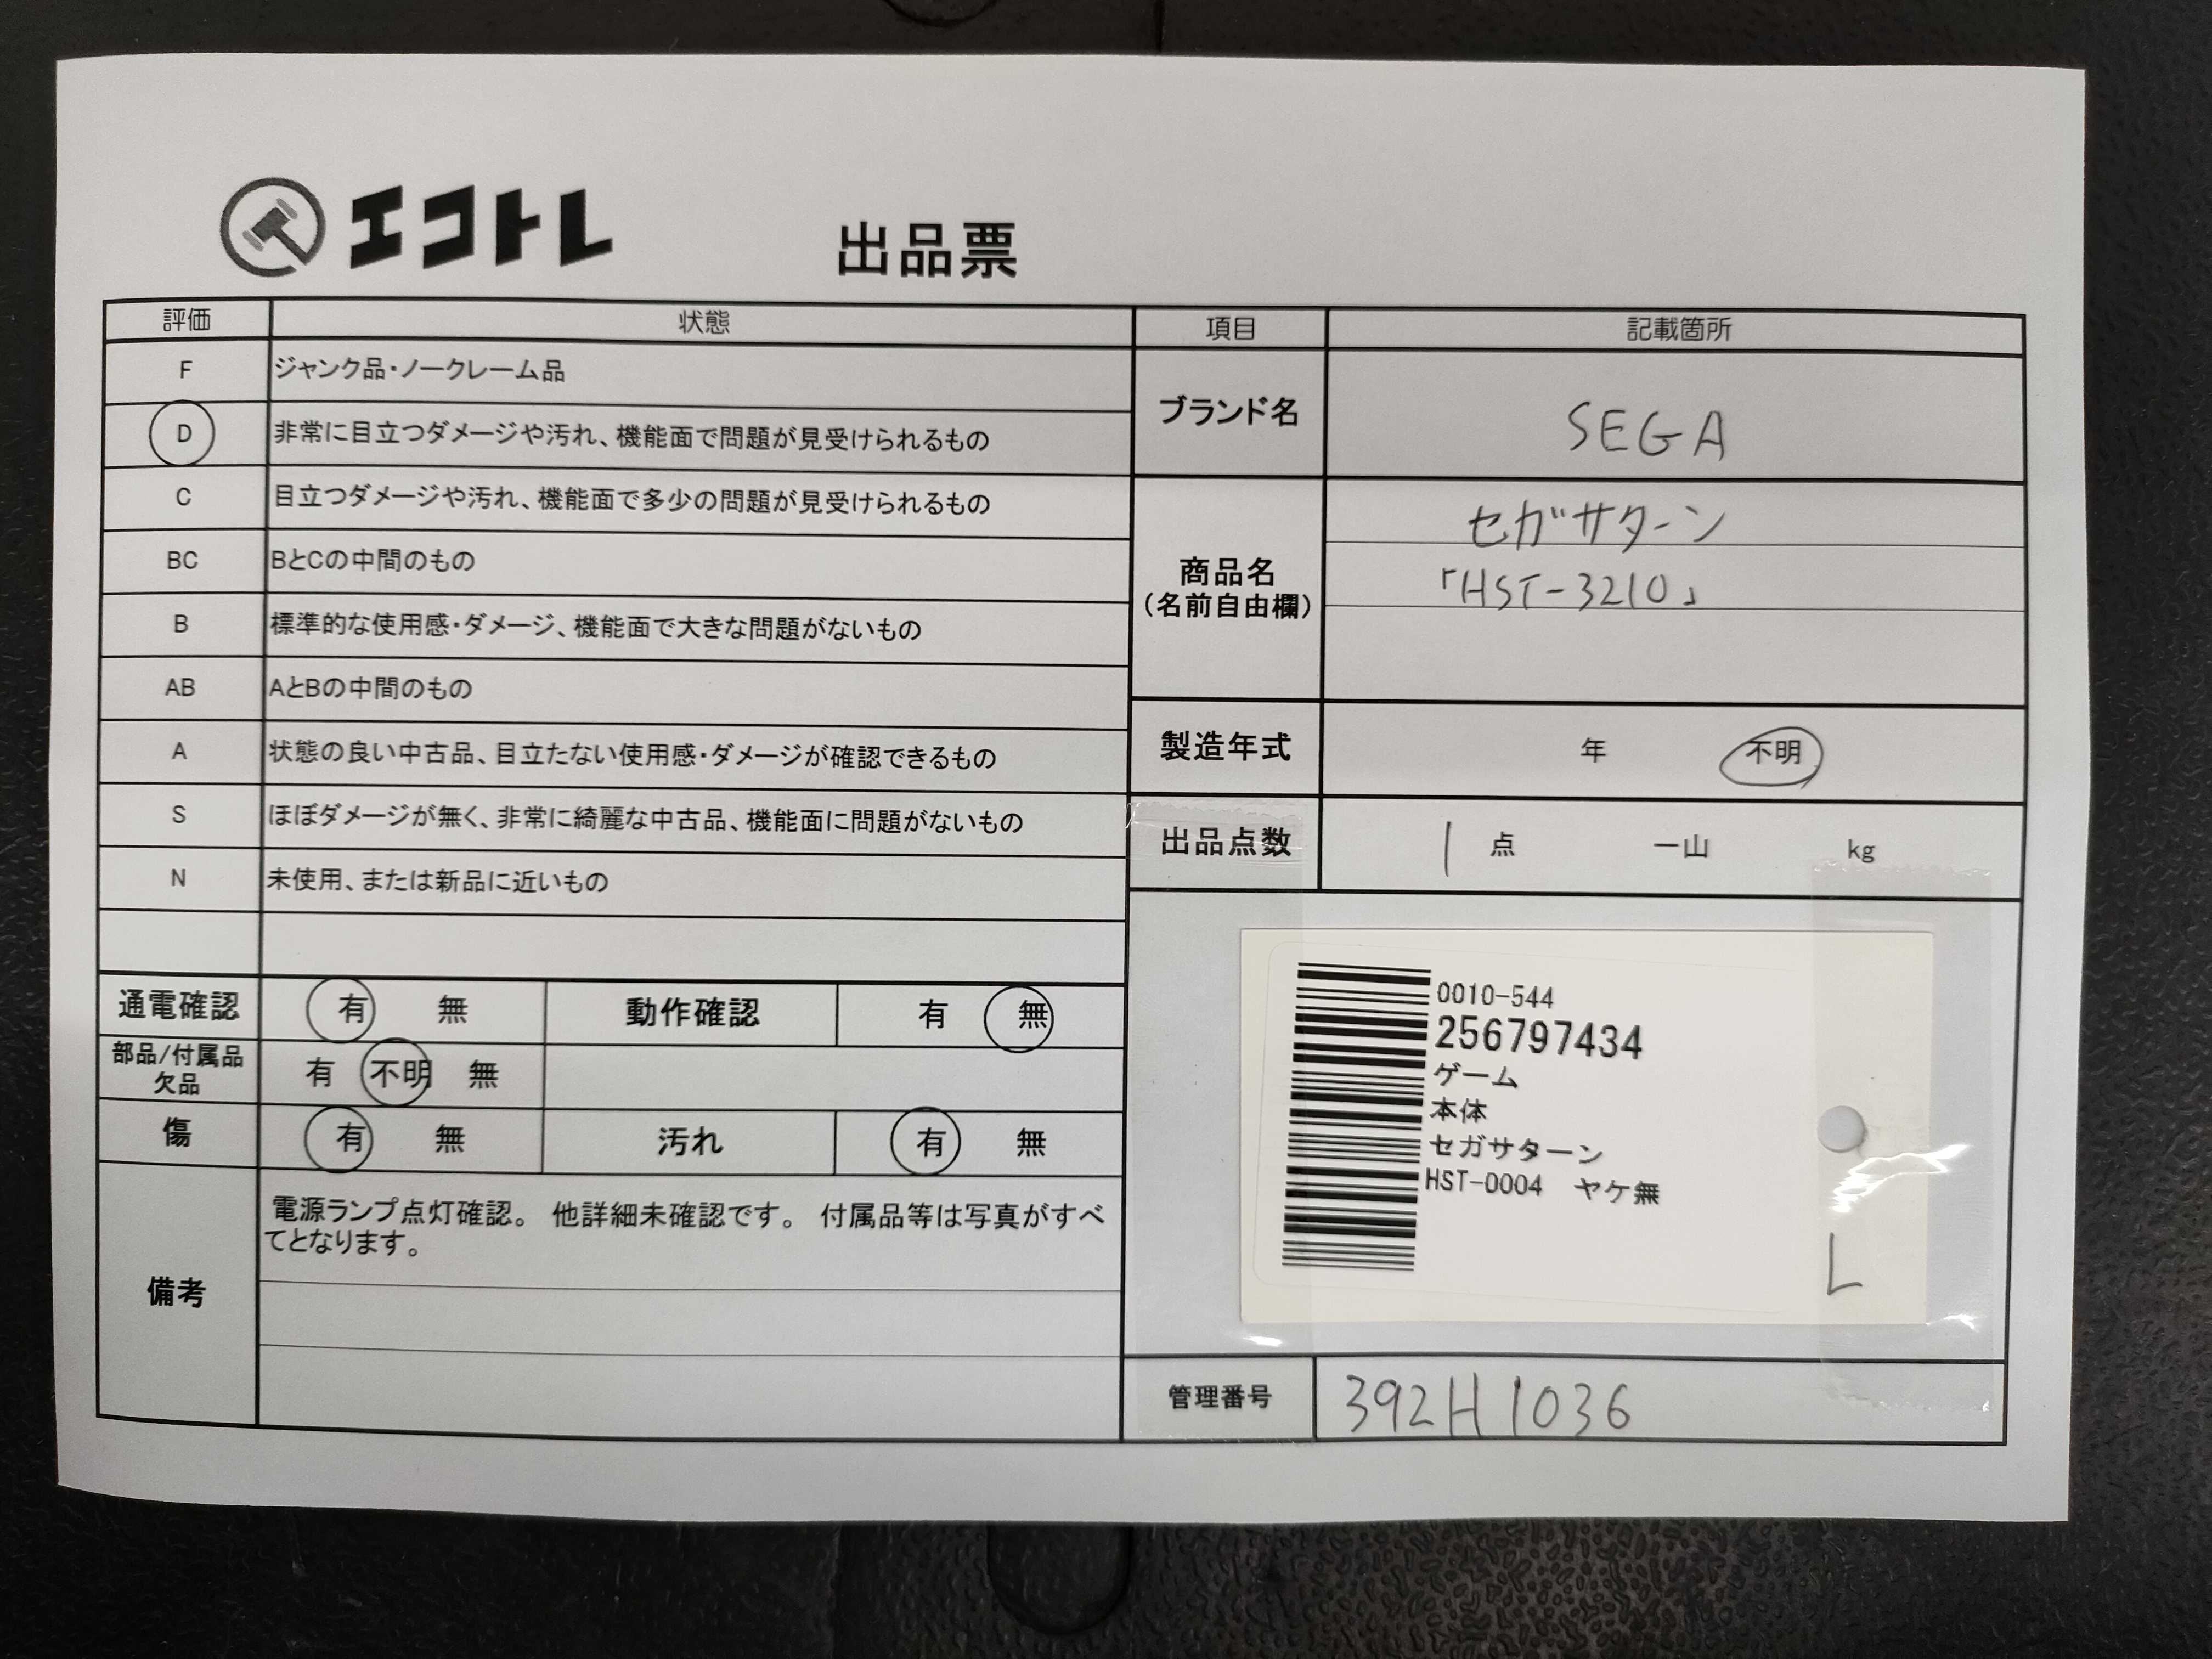 エコトレ
出品票
評価 状態
F ジャンク品・ノークレーム品
D 非常に目立つダメージや汚れ、機能面で問題が見受けられるもの
C 目立つダメージや汚れ、機能面で多少の問題が見受けられるもの
BC BとCの中間のもの
B 標準的な使用感・ダメージ、機能面で大きな問題がないもの
AB AとBの中間のもの
A 状態の良い中古品、目立たない使用感・ダメージが確認できるもの
S ほぼダメージが無く、非常に綺麗な中古品、機能面に問題がないもの
N 未使用、または新品に近いもの
通電確認 有 無 動作確認 有 無
部品/付属品
欠品 有 不明 無
傷 有 無 汚れ 有 無
備考
電源ランプ点灯確認。 他詳細未確認です。 付属品等は写真がすべ
てとなります。
項目 記載箇所
ブランド名 SEGA
商品名
(名前自由欄)
セガサターン
「HST-3210」
製造年式 年 不明
出品点数 1 点 一山 kg
0010-544
256797434
ゲーム
本体
セガサターン
HST-0004 ヤケ無
L
管理番号 392H1036